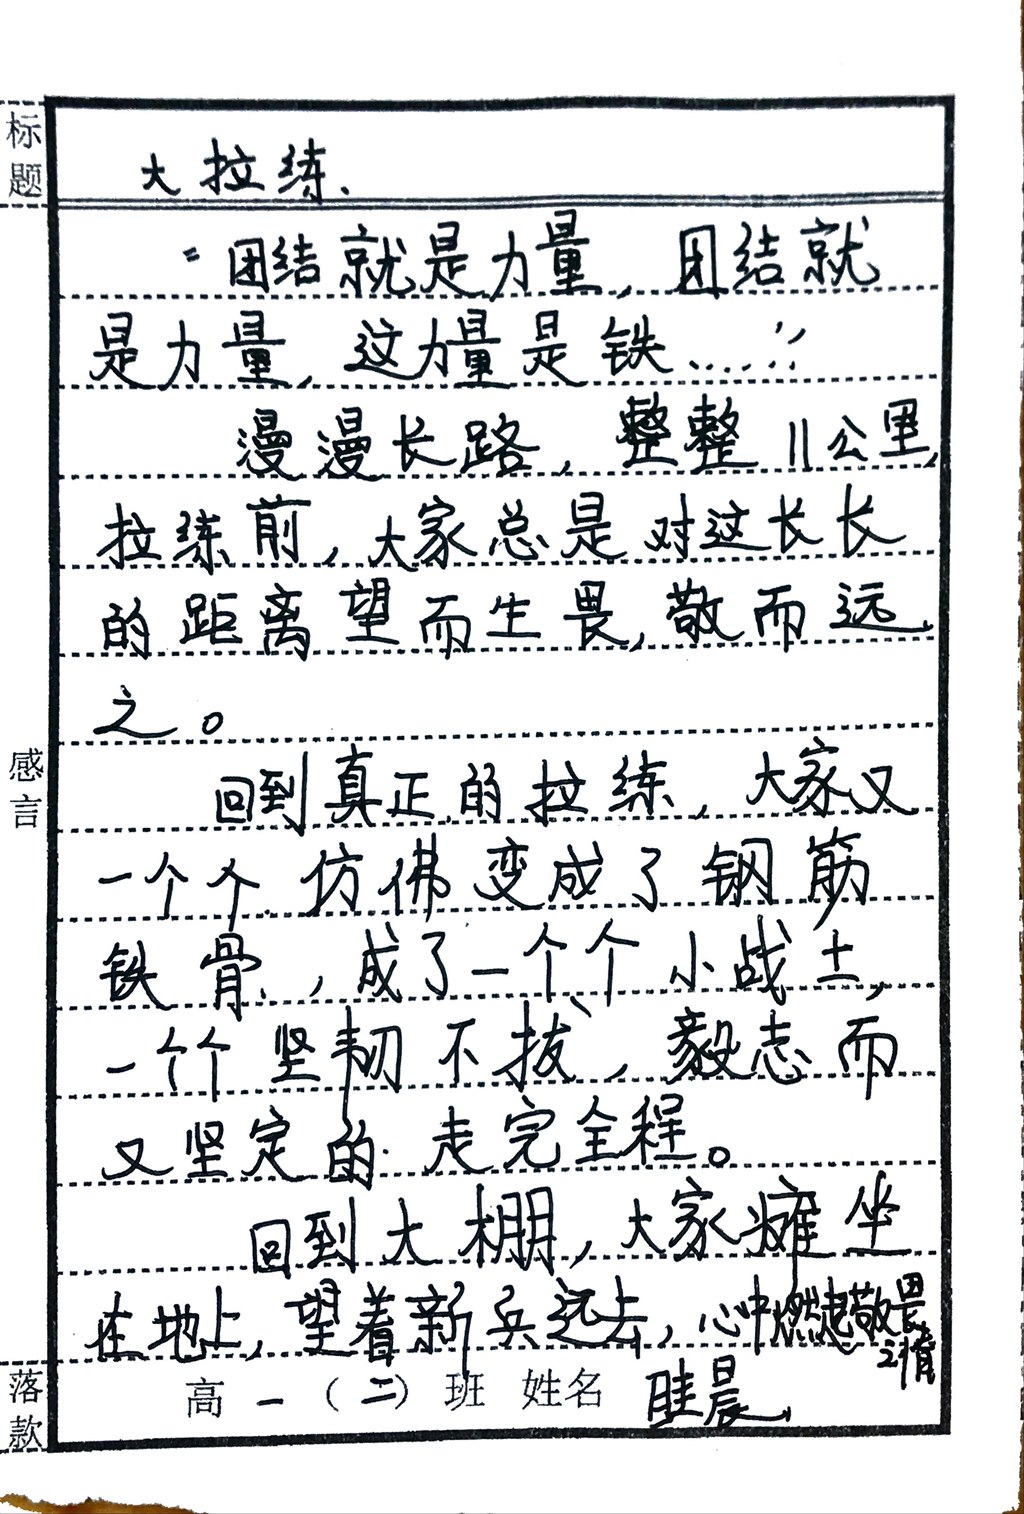 标题
大拉练.
“团结就是力量,团结就
是力量,这力量是铁……”
漫漫长路,整整11公里,
拉练前,大家总是对这长长
的距离望而生畏,敬而远
之。
感言
回到真正的拉练,大家又
一个个仿佛变成了钢筋
铁骨,成了一个个小战士,
一个个坚韧不拔、,毅志而
又坚定的走完全程。
回到大棚,大家瘫坐
在地上,望着新兵远去,心中燃起敬畏
之情
落款
高一(二)班 姓名 眭晨